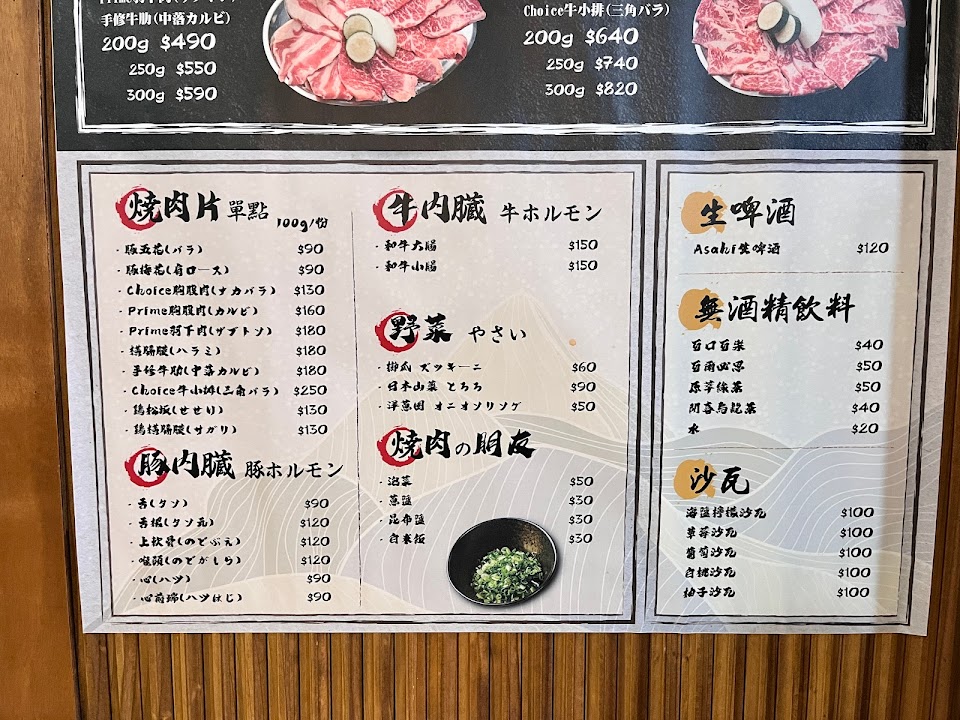 手修牛肋(中落カルビ)
200g $490
250g $550
300g $590
Choice牛小排(三角バラ)
200g $640
250g $740
300g $820
燒肉片 單點 100g/份
・豚五花(バラ) $90
・豚梅花(肩ロース) $90
・Choice胸腹肉(ナカバラ) $130
・Prime胸腹肉(カルビ) $160
・Prime羽下肉(ザブトン) $180
・橫膈膜(ハラミ) $180
・手修牛肋(中落カルビ) $180
・Choice牛小排(三角バラ) $250
・鶏松坂(せせり) $130
・鶏橫膈膜(サガリ) $130
豚內臟 豚ホルモン
・舌(タン) $90
・舌根(タン元) $120
・上軟骨(のどぶえ) $120
・喉頭(のどがしら) $120
・心(ハツ) $90
・心前端(ハツはじ) $90
牛內臟 牛ホルモン
・和牛大腸 $150
・和牛小腸 $150
野菜 やさい
・櫛瓜 ズッキーニ $60
・日本山藥 とろろ $90
・洋蔥圈 オニオンリング $50
燒肉の朋友
・泡菜 $50
・蔥鹽 $30
・昆布鹽 $30
・白米飯 $30
生啤酒
Asahi生啤酒 $120
無酒精飲料
百口百樂 $40
百爾必思 $50
原萃綠茶 $50
開喜烏龍茶 $40
水 $20
沙瓦
海鹽檸檬沙瓦 $100
草莓沙瓦 $100
葡萄沙瓦 $100
白桃沙瓦 $100
柚子沙瓦 $100